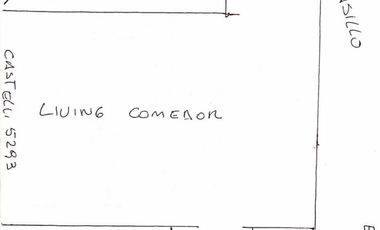 CASTELLI 5293
LIVING COMEDOR
ASILLO
E